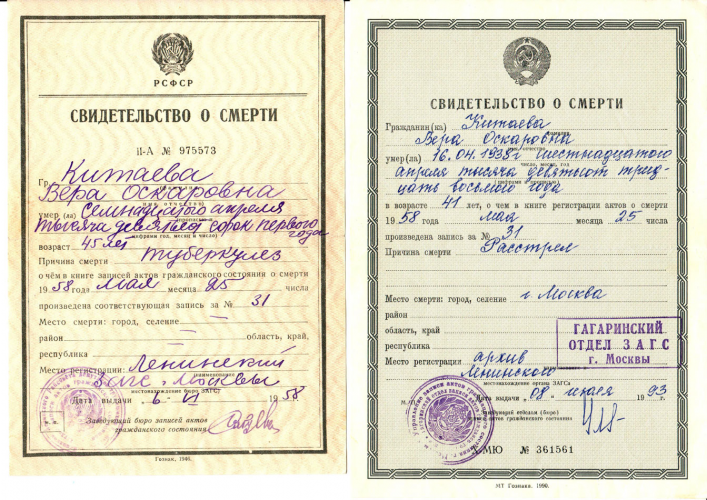 РСФСР
СВИДЕТЕЛЬСТВО О СМЕРТИ
II-А № 975573
Гр. Китаева
Вера Оскаровна
умер (ла) Семнадцатого апреля
тысяча девятьсот сорок первого
года
возраст 45 лет
Причина смерти туберкулез
о чём в книге записей актов гражданского состояния о смерти
1958 года мая месяца 25 числа
произведена соответствующая запись за № 31
Место смерти: город, селение —
район — область, край,
республика
Место регистрации: Ленинский
наименование
Загс г. Москвы
местонахождение бюро ЗАГС
Дата выдачи 6 VI 1958
М.П.
Заведующий бюро записей актов
гражданского состояния
Гознак. 1946.
СВИДЕТЕЛЬСТВО О СМЕРТИ
Гражданин (ка) Китаева
фамилия
Вера Оскаровна
имя, отчество
умер (ла) 16.04.1938г шестнадцатого
число, месяц, год
апреля тысяча девятьсот трид-
цать восьмого года
в возрасте 41 лет, о чем в книге регистрации актов о смерти
1958 года мая месяца 25 числа
произведена запись за № 31
Причина смерти Расстрел
Место смерти: город, селение г. Москва
район
область, край
республика
Место регистрации архив
Ленинского
местонахождение органа ЗАГСа
ГАГАРИНСКИЙ
ОТДЕЛ ЗАГС
г. Москвы
Дата выдачи 08 июля 1993 г.
М.П.
Заведующий отделом (бюро)
записи актов гражданского состояния
-МЮ № 361561
МТ Гознака. 1990.